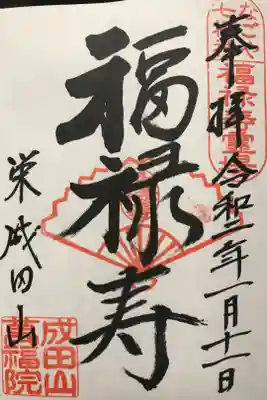 奉拝 令和二年一月十一日
福禄寿霊場
福禄寿
栄 成田山
成田山
萬福院